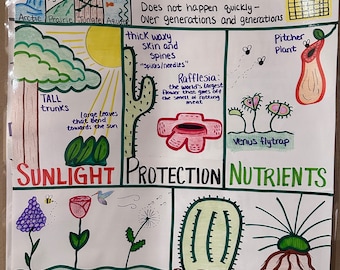 Arctic
Prairie
Does not happen quickly -
Over generations and generations
TALL
trunks
large leaves
that bend
towards the sun
thick waxy
skin and
spines
"spikes/needles"
Rafflesia:
the world's largest
flower that gives off
the smell of rotting
meat
Pitcher
Plant
Venus flytrap
SUNLIGHT
PROTECTION
NUTRIENTS